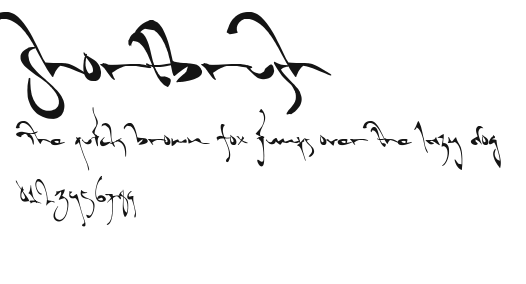 the quick brown fox jumps over the lazy dog
0123456789